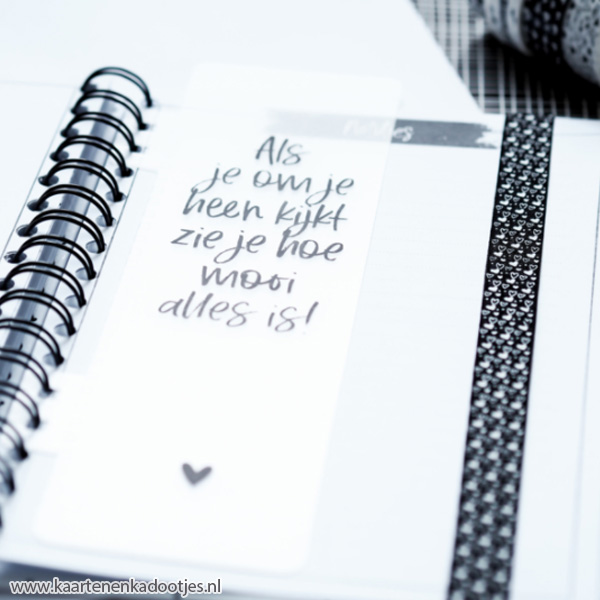 Als
je om je
heen kijkt
zie je hoe
mooi
alles is!
www.kaartenenkadootjes.nl